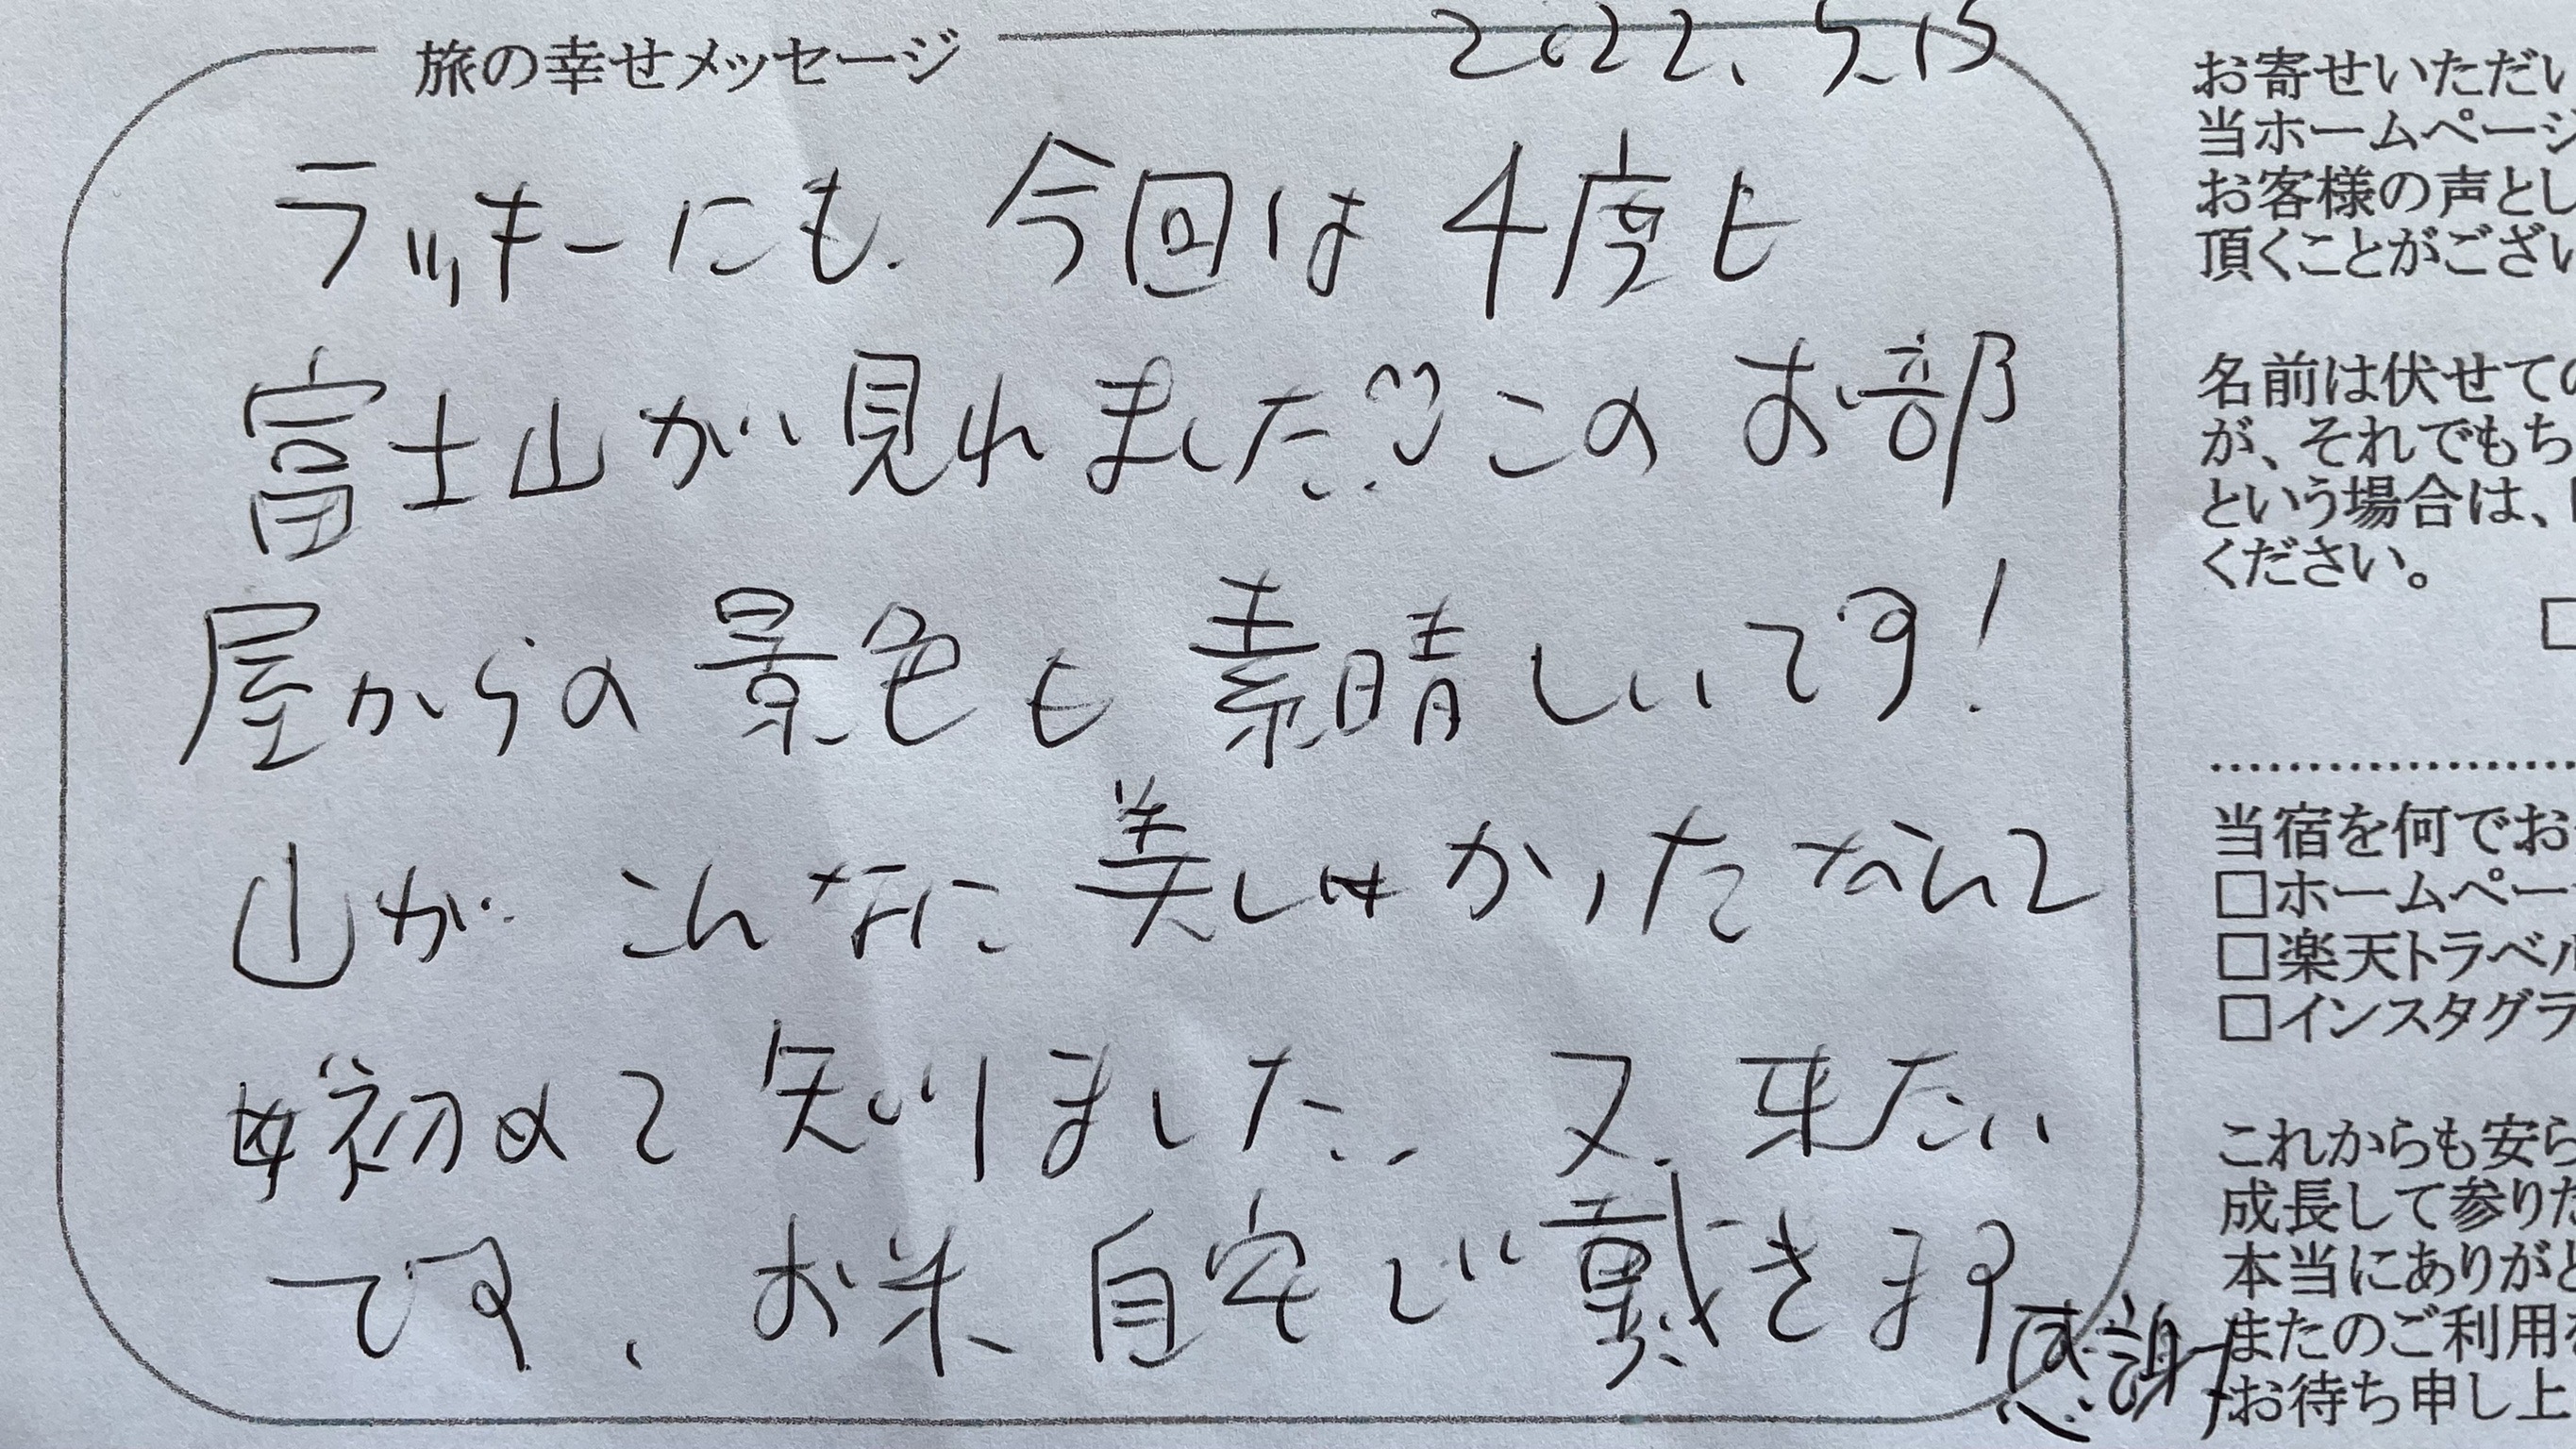 旅の幸せメッセージ
2022.5.15
ラッキーにも、今回は4度も
富士山が見れました♡このお部
屋からの景色も素晴しいです!
山がこんなに美しかったなんて
初めて知りました。又、来たい
です、お米、自宅で戴きます
感謝
お寄せいただい
当ホームページ
お客様の声とし
頂くことがござい
名前は伏せての
が、それでもち
という場合は、
ください。
□
当宿を何でお
□ホームペー
□楽天トラベル
□インスタグラ
これからも安ら
成長して参りた
本当にありがと
またのご利用を
お待ち申し上